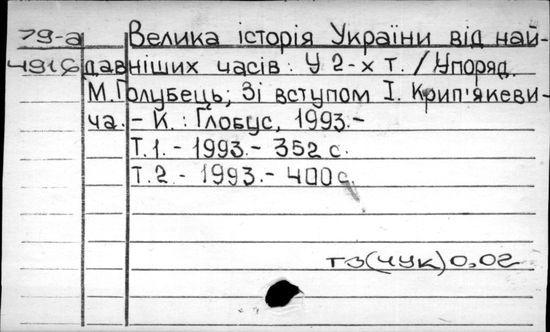 79-а Велика історія України від най-
4916 давніших часів: У 2-х т. / Упоряд.
М. Голубець; Зі вступом І. Крип'якеви-
ча. - К.: Глобус, 1993.-
Т.1. - 1993. - 352 с.
Т.2. - 1993. - 400 с.
Т3(4УК)0,02